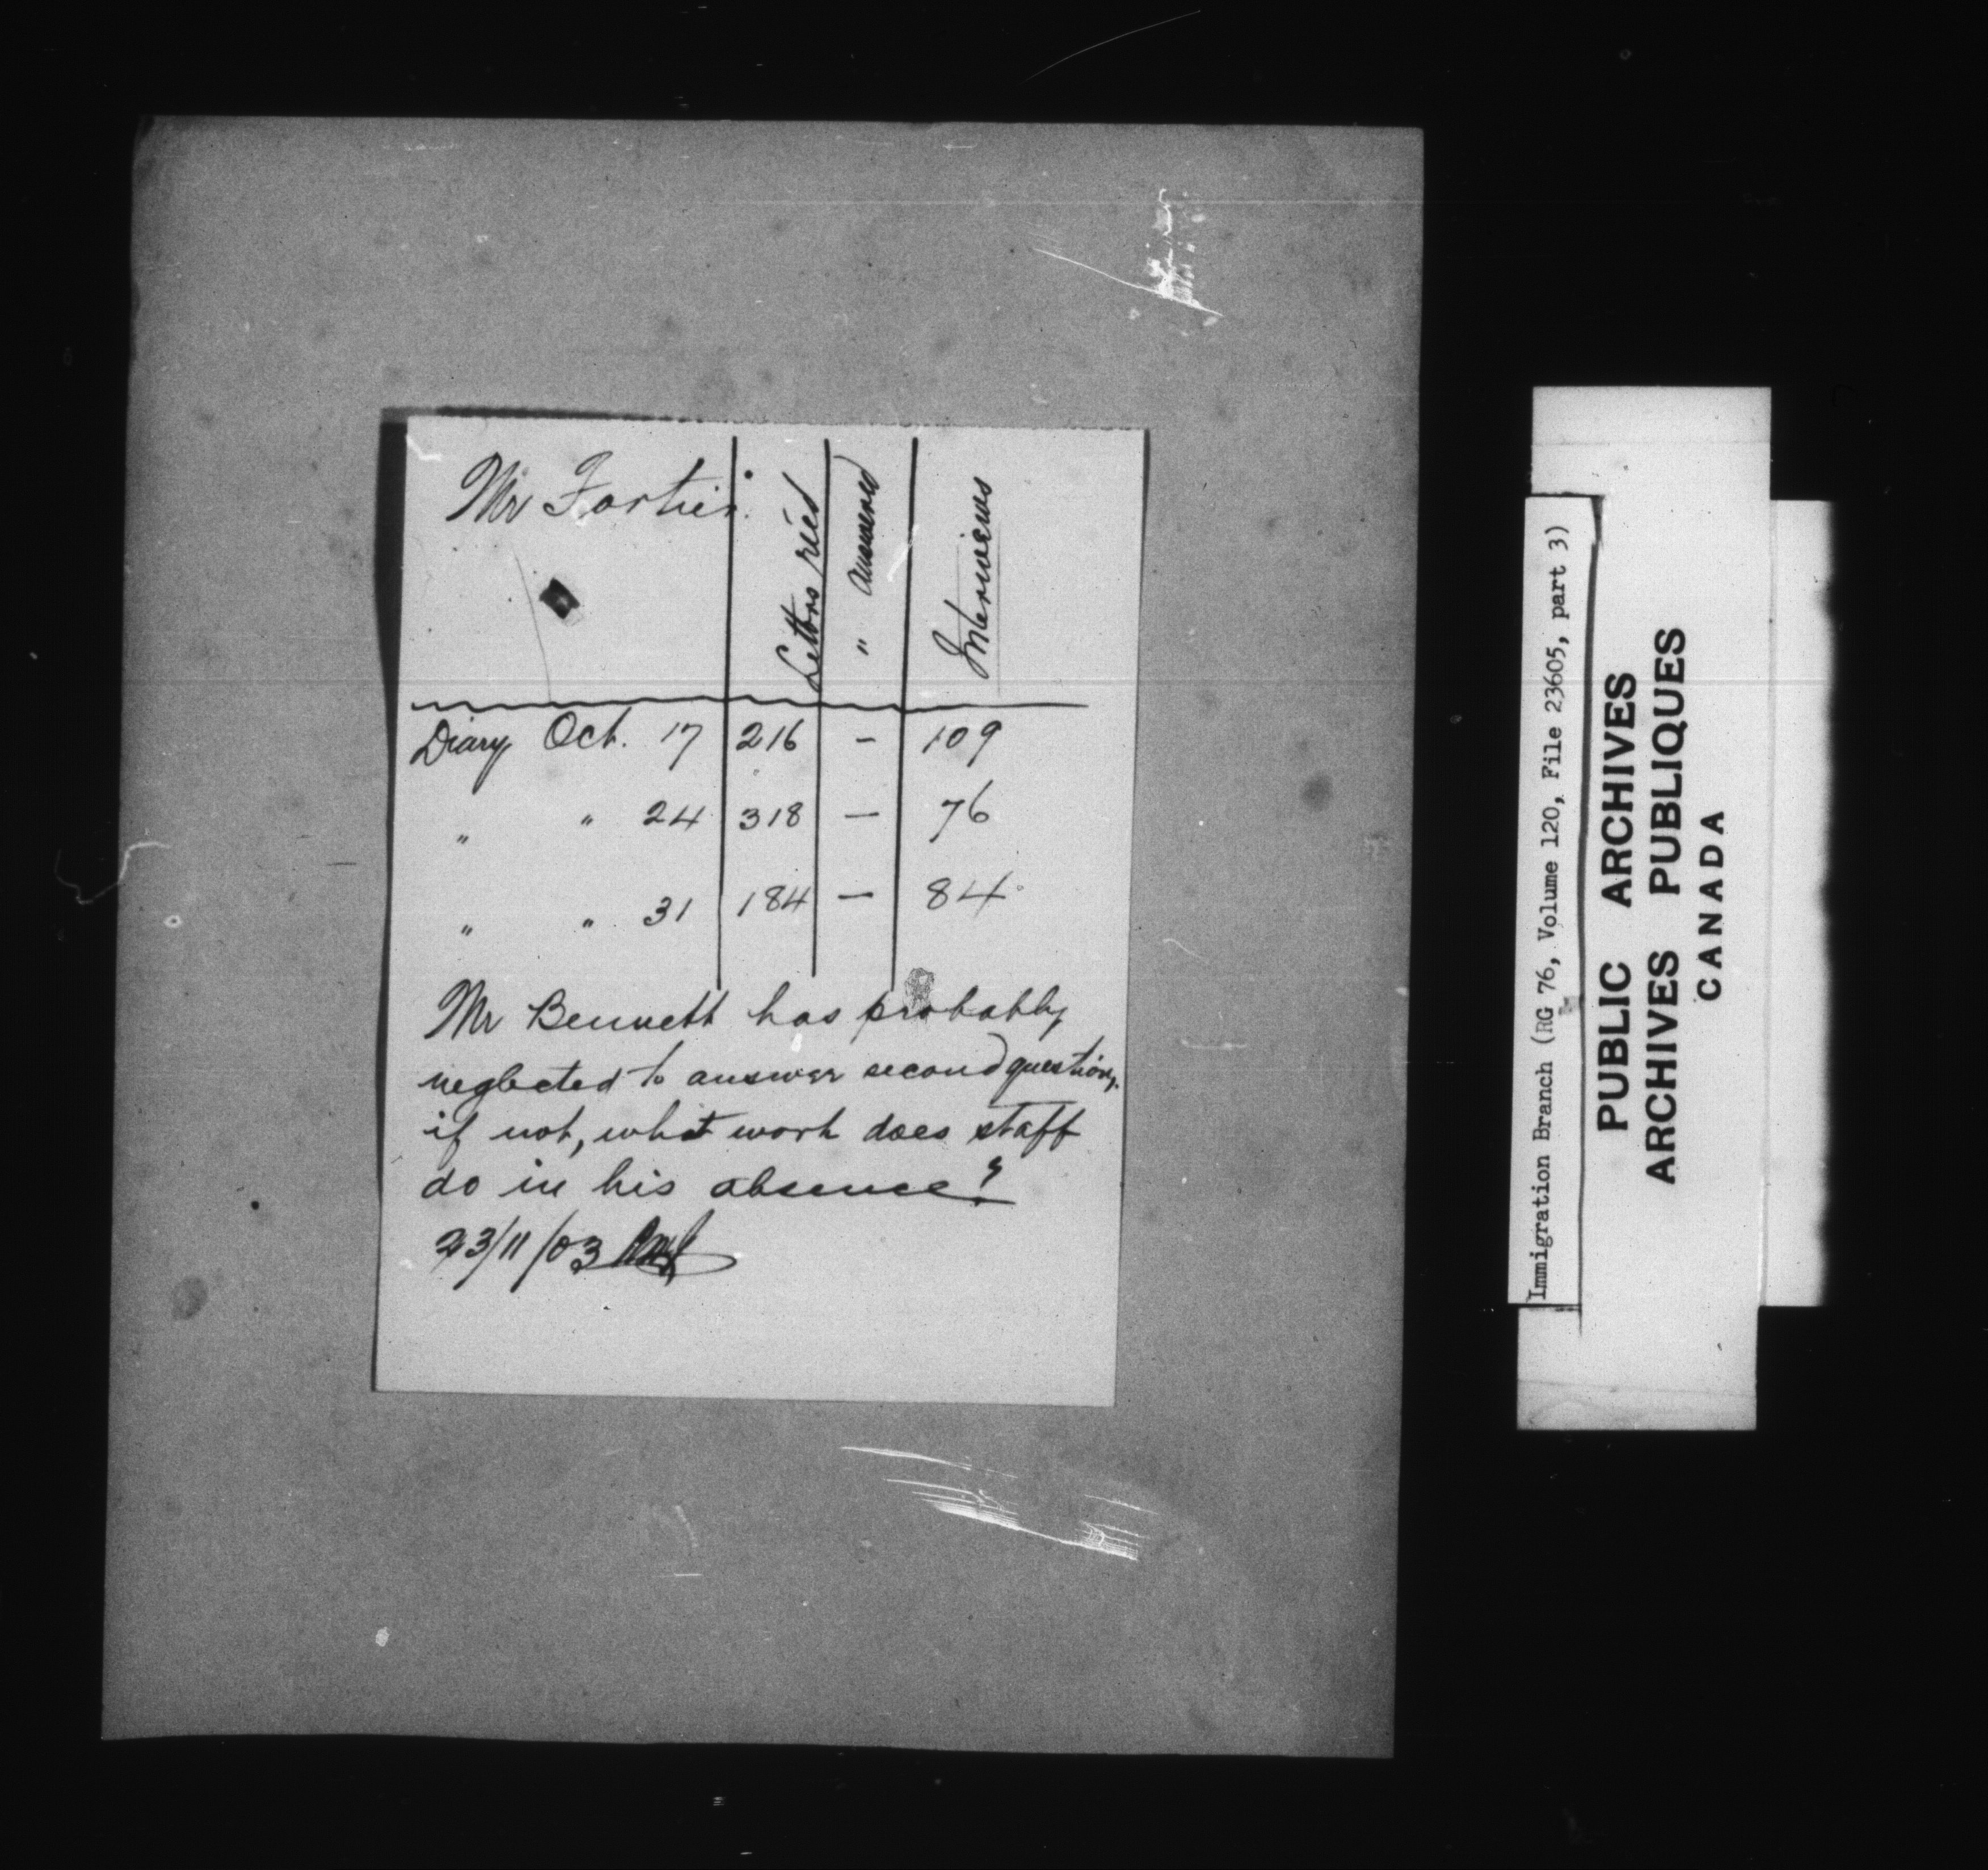 Mr Fortier.
Letters rec'd
" Answered
Interviews
Diary Oct. 17 216 - 109
" " 24 318 - 76
" " 31 184 - 84
Mr Bennett has probably
neglected to answer second question,
if not, what work does staff
do in his absence?
23/11/03
Immigration Branch (RG 76, Volume 120, File 23605, part 3)
PUBLIC ARCHIVES
ARCHIVES PUBLIQUES
CANADA